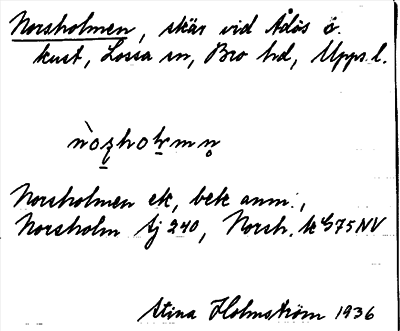 Norsholmen, skär vid Ådös ö.
kust, Lossa sn, Bro hd, Upps. l.
Norsholmen ek, bek anm.,
Norsholm tj 240, Norsh. k G75 NV
Stina Holmström 1936